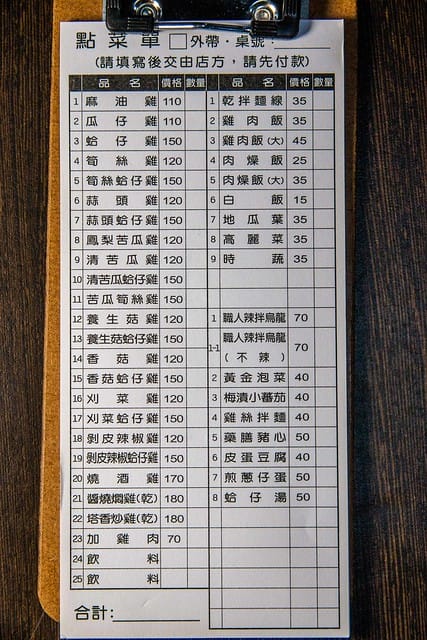 點菜單 □外帶・桌號:
(請填寫後交由店方，請先付款)
品名 價格 數量
1 麻油雞 110
2 瓜仔雞 110
3 蛤仔雞 150
4 筍絲雞 120
5 筍絲蛤仔雞 150
6 蒜頭雞 120
7 蒜頭蛤仔雞 150
8 鳳梨苦瓜雞 120
9 清苦瓜雞 120
10 清苦瓜蛤仔雞 150
11 苦瓜筍絲雞 150
12 養生菇雞 120
13 養生菇蛤仔雞 150
14 香菇雞 120
15 香菇蛤仔雞 150
16 刈菜雞 120
17 刈菜蛤仔雞 150
18 剝皮辣椒雞 120
19 剝皮辣椒蛤仔雞 150
20 燒酒雞 170
21 醬燒燜雞(乾) 180
22 塔香炒雞(乾) 180
23 加雞肉 70
24 飲料
25 飲料
合計:
品名 價格 數量
1 乾拌麵線 35
2 雞肉飯 35
3 雞肉飯(大) 45
4 肉燥飯 25
5 肉燥飯(大) 35
6 白飯 15
7 地瓜葉 35
8 高麗菜 35
9 時蔬 35
1 職人辣拌烏龍 70
1-1 職人辣拌烏龍(不辣) 70
2 黃金泡菜 40
3 梅漬小蕃茄 40
4 雞絲拌麵 40
5 藥膳豬心 50
6 皮蛋豆腐 40
7 煎蔥仔蛋 50
8 蛤仔湯 50